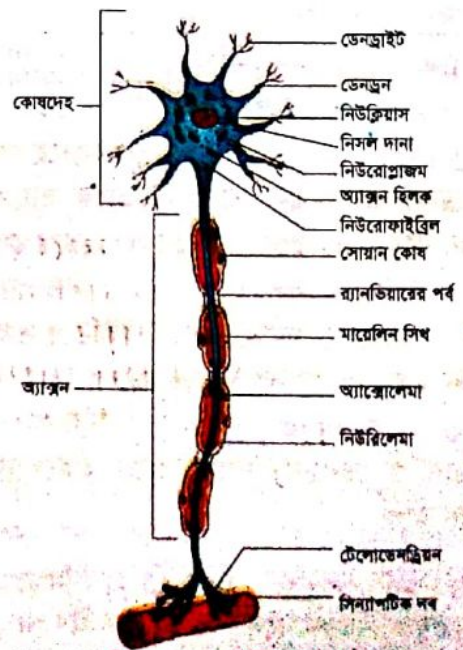 ডেনড্রাইট
ডেনড্রন
কোষদেহ
নিউক্লিয়াস
নিসল দানা
নিউরোপ্লাজম
অ্যাক্সন হিলক
নিউরোফাইব্রিল
সোয়ান কোষ
র‍্যানভিয়ারের পর্ব
মায়েলিন সিথ
অ্যাক্সন
অ্যাক্সোলেমা
নিউরিলেমা
টেলোডেনড্রিয়ন
সিন্যাপটিক নব